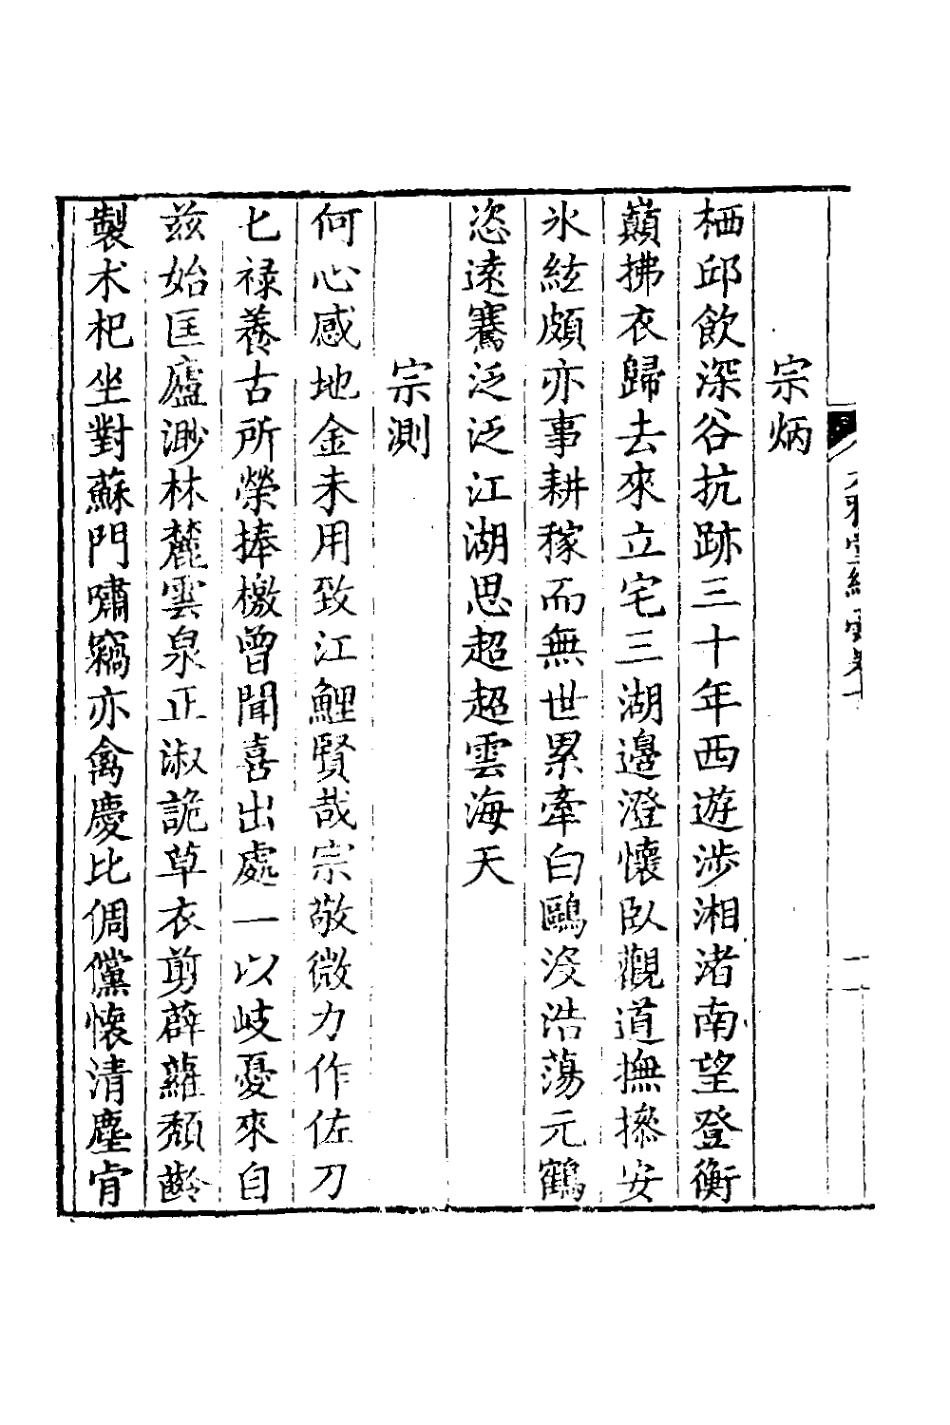 宗炳
栖邱飲深谷抗跡三十年西遊涉湘渚南望登衡
巔拂衣歸去來立宅三湖邊澄懷臥觀道撫摻安
氷絃頗亦事耕稼而無世累牽白鷗没浩蕩元鶴
恣遠騫泛泛江湖思超超雲海天
宗測
何心感地金未用致江鯉賢哉宗敬微力作佐刀
匕祿養古所榮捧檄曾聞喜出處一以岐憂來自
兹始匡廬渺林麓雲泉正淑詭草衣剪薜蘿頽齡
製术杞坐對蘇門嘯竊亦禽慶比倜儻懷清塵肯